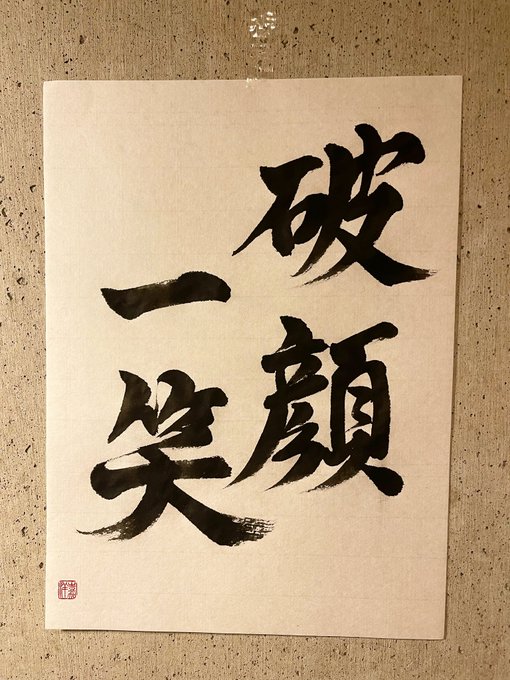 破顔
一笑